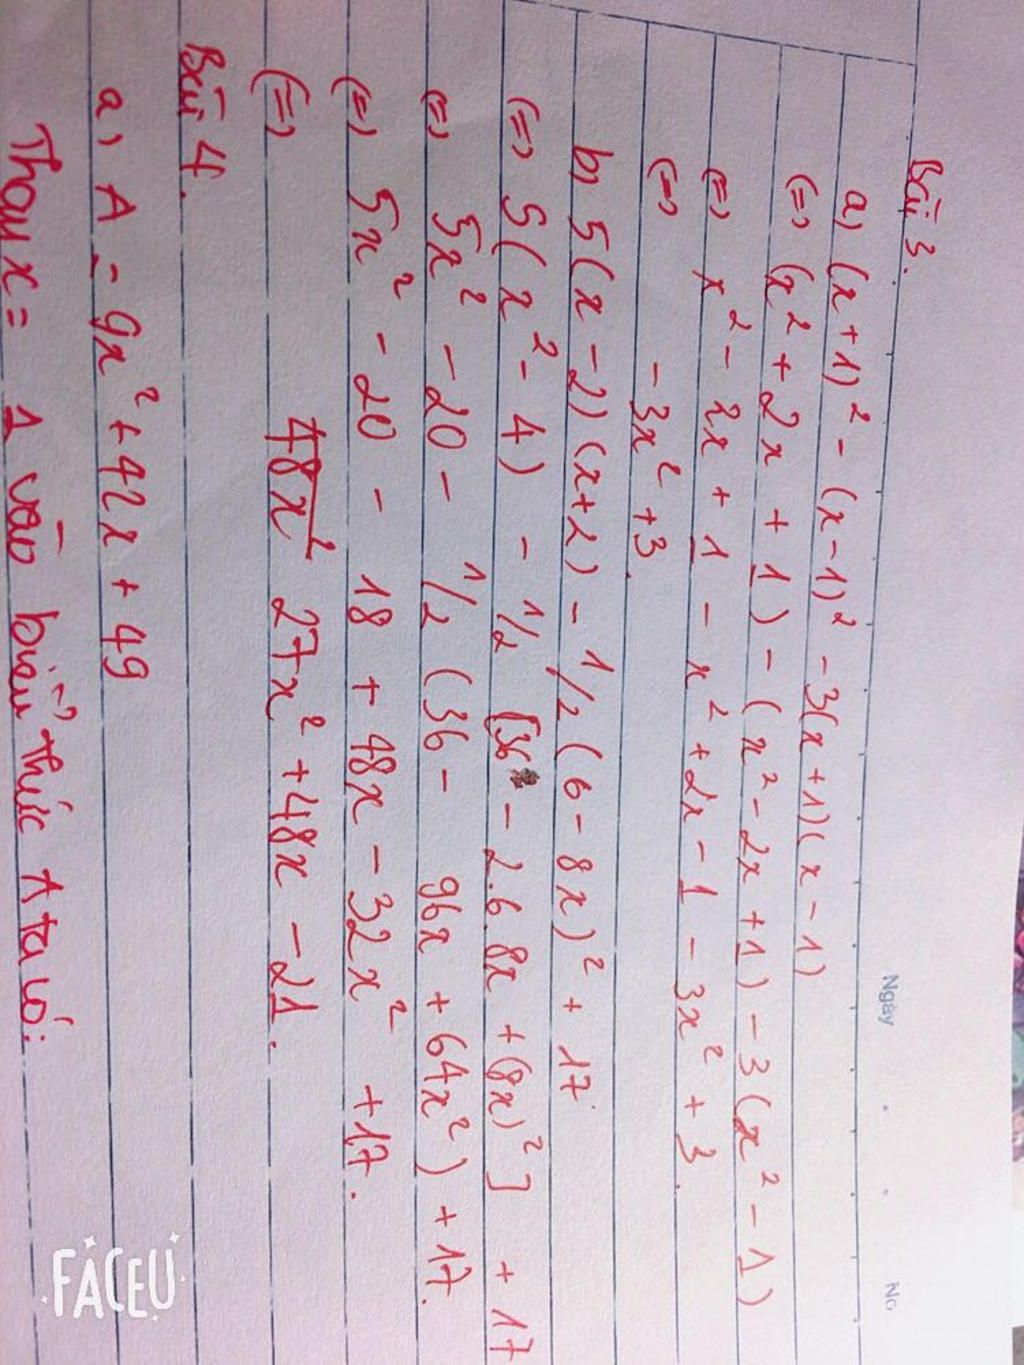 Ngày
No
Bài 3.
a) (x+1)² - (x-1)² - 3(x+1)(x-1)
(=) (x² + 2x + 1) - (x² - 2x + 1) - 3(x² - 1)
(=) x² - 2x + 1 - x² + 2x - 1 - 3x² + 3
(=) - 3x² + 3.
b) 5(x - 2)(x+2) - 1/2 (6 - 8x)² + 17
(=) 5(x² - 4) - 1/2 [36 - 2.6.8x + (8x)²] + 17
(=) 5x² - 20 - 1/2 (36 - 96x + 64x²) + 17.
(=) 5x² - 20 - 18 + 48x - 32x² + 17.
(=) 48x² 27x² + 48x - 21.
Bài 4.
a) A = 9x² + 42x + 49
Thay x = 1 vào biểu thức A ta có:
FACEU